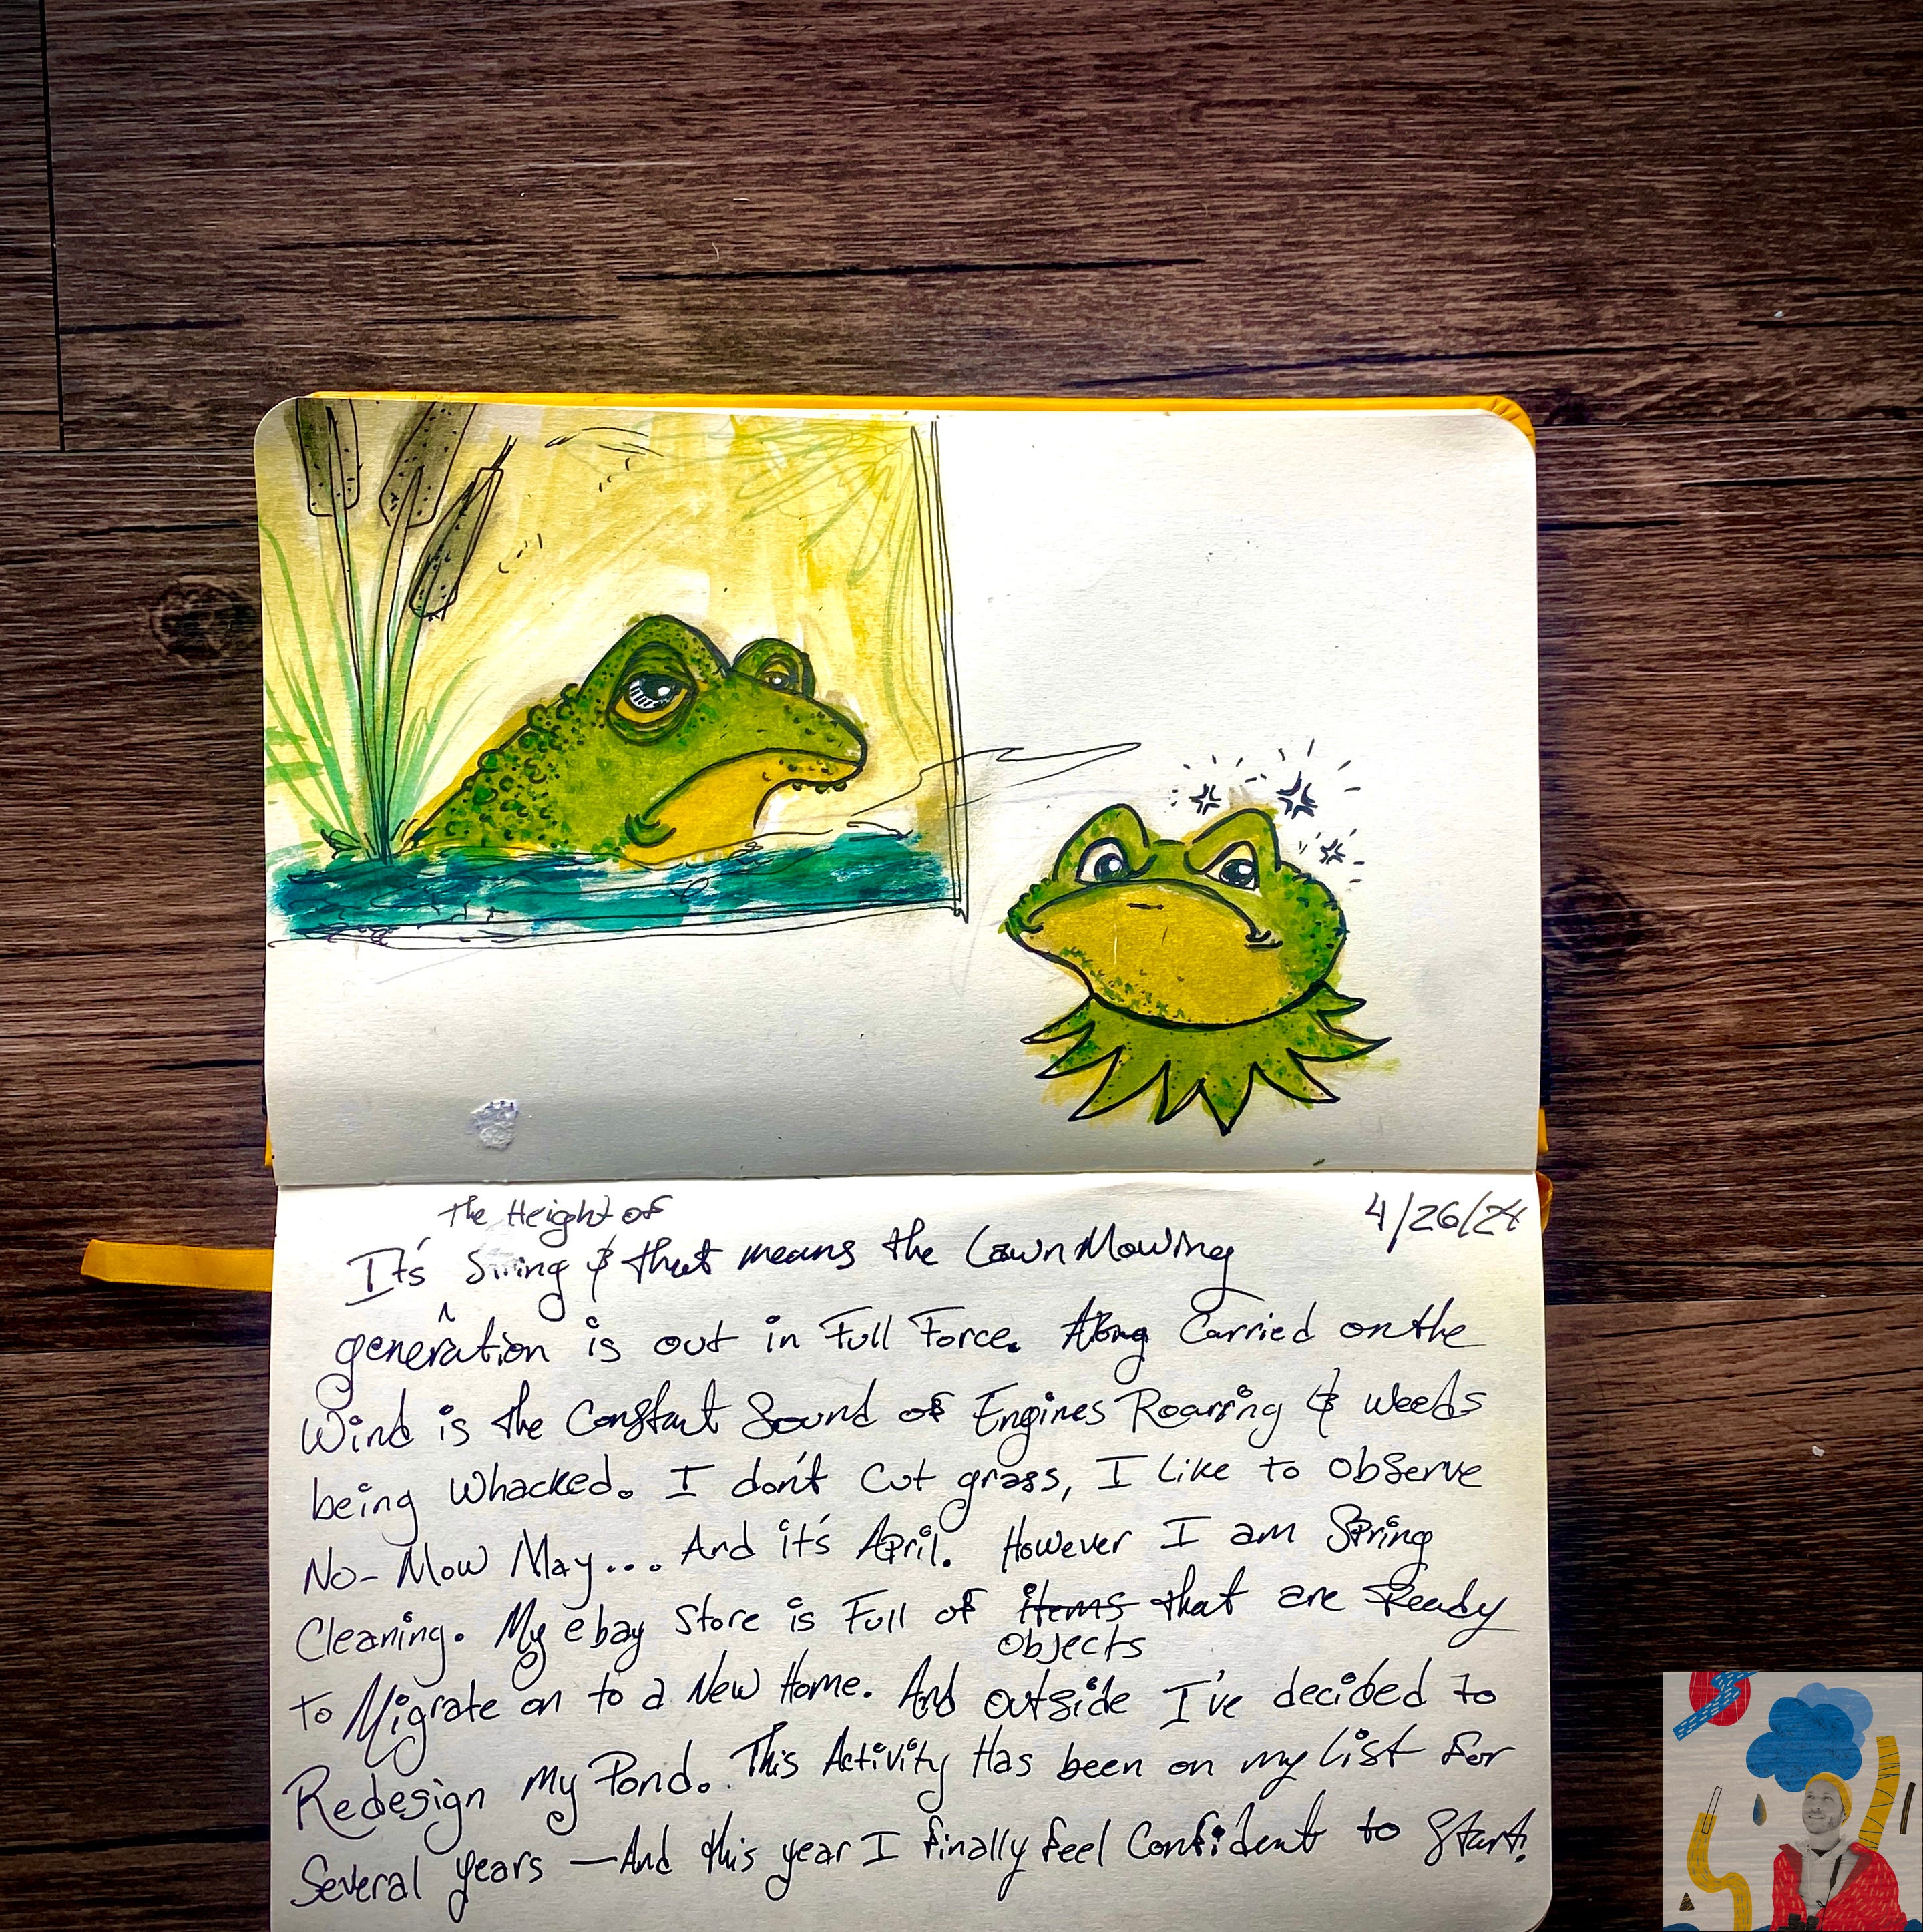 The Height of
4/26/24
It's Spring & that means the Lawn Mowing
generation is out in Full Force. Along Carried on the
Wind is the Constant Sound of Engines Roaring & Weeds
being Whacked. I don't Cut grass, I Like to Observe
No-Mow May... And it's April. However I am Spring
Cleaning. My ebay Store is Full of items that are Ready
objects
To Migrate on to a New Home. And outside I've decided to
Redesign My Pond. This Activity Has been on my List For
Several years —And this year I finally feel Confident to Start!